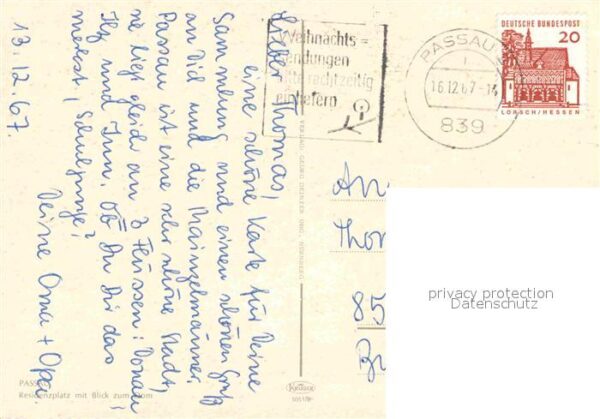 Lieber Thomas,
eine schöne Karte für Deine
Sammlung und einen schönen Gruß
an Dich und die Mainzelmänner.
Passau ist eine sehr schöne Stadt,
sie liegt gleich an 3 Flüssen: Donau
Ilz und Inn. Ob Du Dir das
merkst, Schuljunge?
Deine Oma + Opa.
13.12.67.
PASSAU
Residenzplatz mit Blick zum Dom
VERLAG: GEORG DIENZER
NÜRNBERG
Weihnachts=
sendungen
bitte rechtzeitig
einliefern
PASSAU
16.12.67.-14
839
DEUTSCHE BUNDESPOST
20
LORSCH/HESSEN
An
Thom
85
privacy protection
Datenschutz